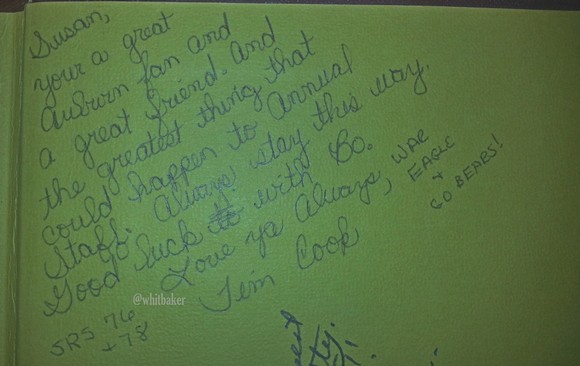 Susan,
your a great
Auburn fan and
a great friend. and
the greatest thing that
could happen to Annual
Staff. Always stay this way.
Good luck with Bo.
Love ya Always,
Tim Cook
WAR
EAGLE
+
GO BEARS!
SRS 76
+ 78
@whitbaker